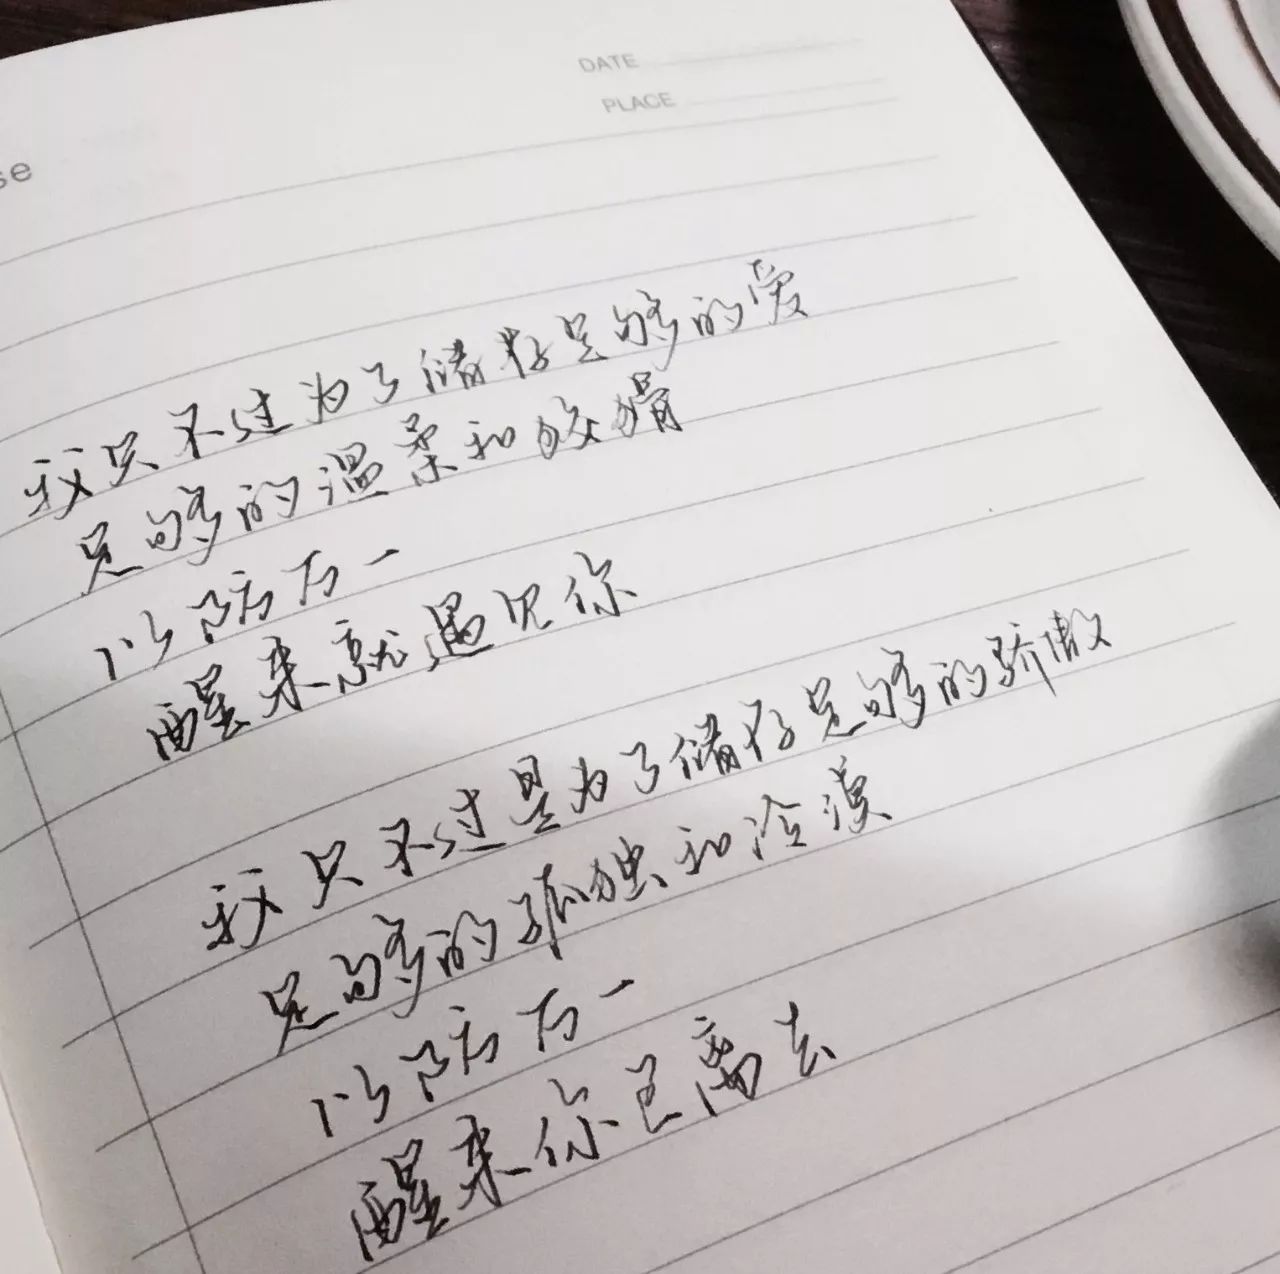 DATE
PLACE
se
我只不过为了储存足够的爱
足够的温柔和狡猾
以防万一
醒来就遇见你
我只不过是为了储存足够的骄傲
足够的孤独和冷漠
以防万一
醒来你已离去